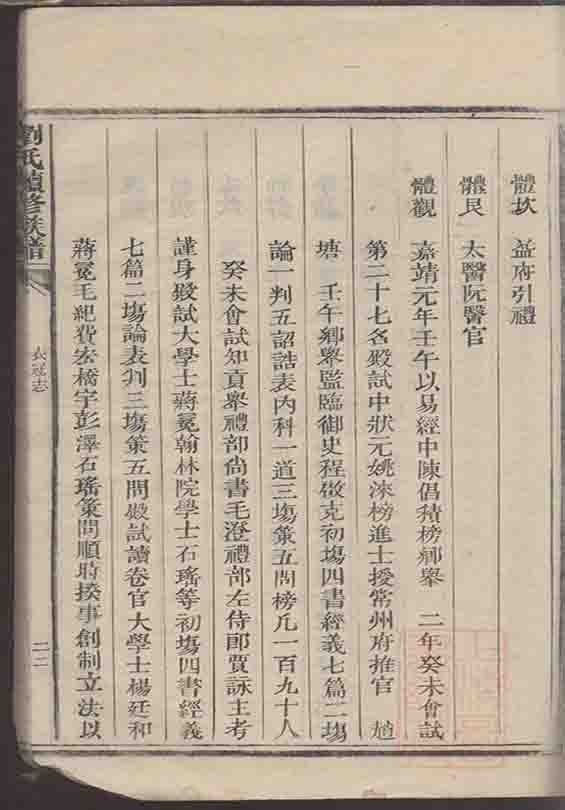 體坎　益府引禮
體艮　太醫院醫官
體觀　嘉靖元年壬午以易經中陳倡積榜鄉舉　二年癸未會試
第二十七名殿試中狀元姚淶榜進士授常州府推官　趙
塘　壬午鄉舉監臨御史程啟充初塲四書經義七篇二塲
論一判五詔誥表內科一道三塲策五問榜凡一百九十人
癸未會試知貢舉禮部尚書毛澄禮部左侍郎賈詠主考
謹身殿試大學士蔣冕翰林院學士石瑤等初塲四書經義
七篇二塲論表判三塲策五問殿試讀卷官大學士楊廷和
蔣冕毛紀費宏橋宇彭澤石瑤策問順時揆事創制立法以
劉氏續修族譜
衣冠志
二二